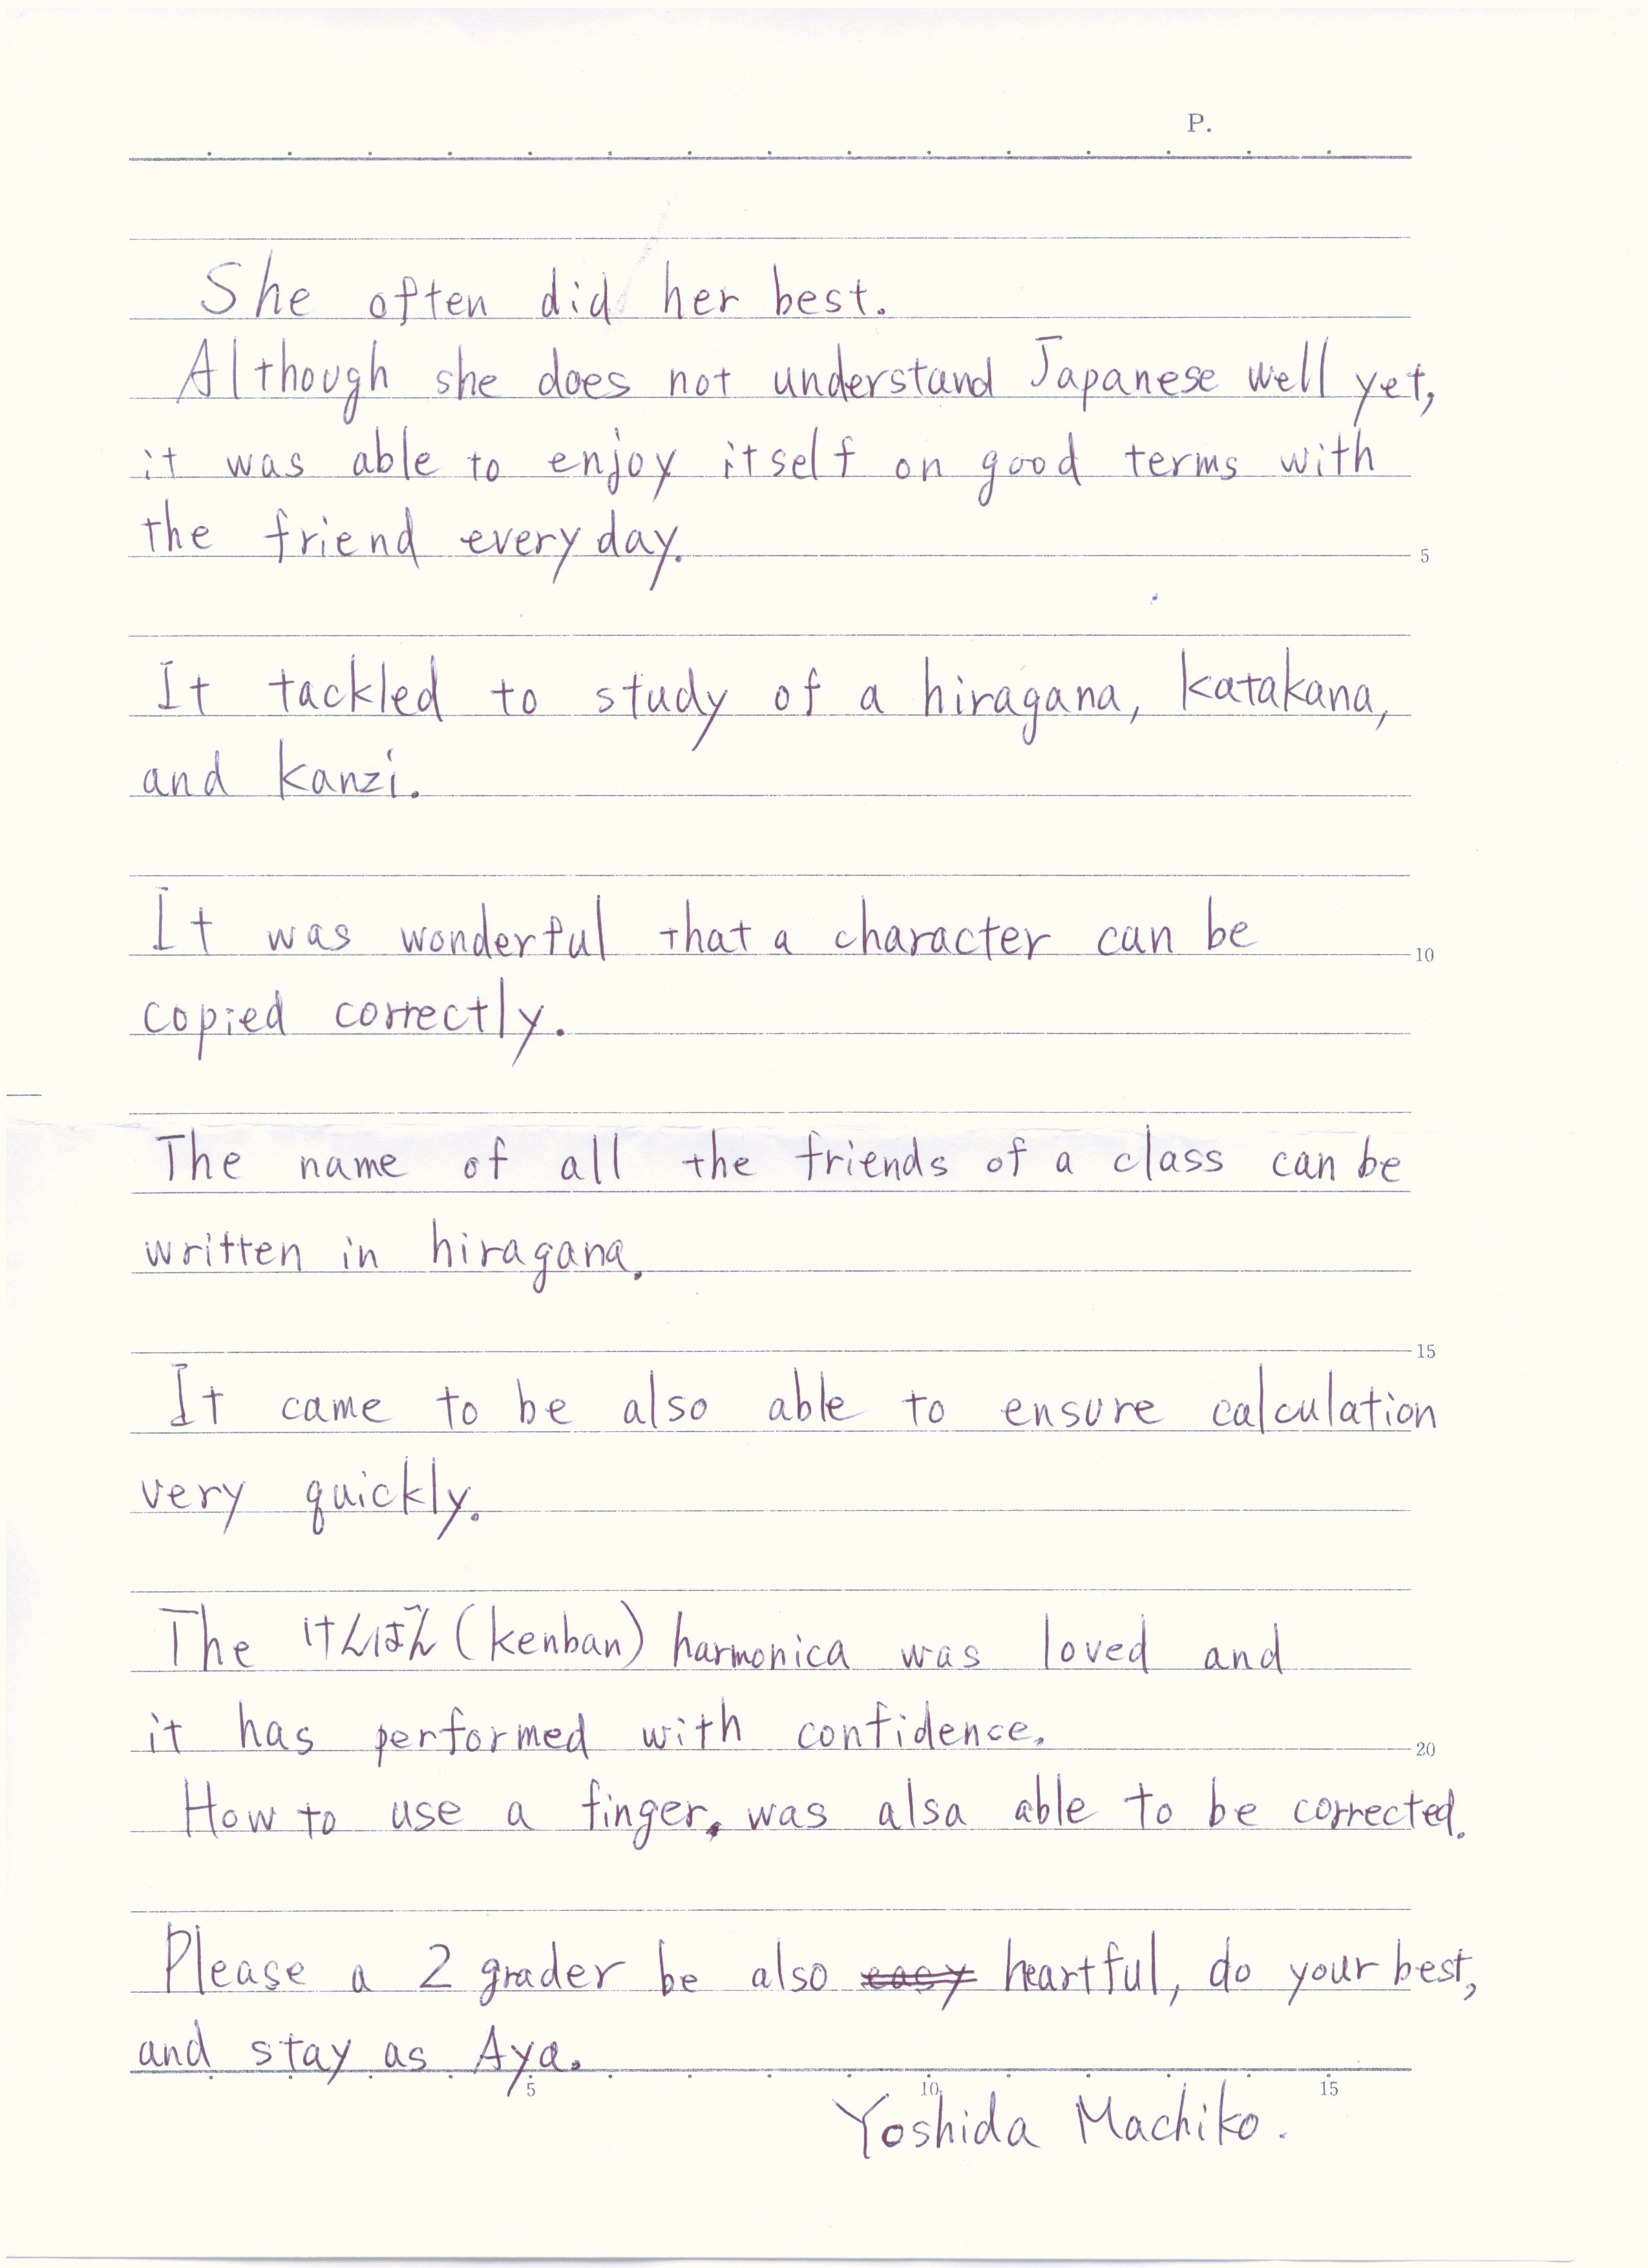 P.
She often did her best.
Although she does not understand Japanese well yet,
it was able to enjoy itself on good terms with
the friend every day.
5
It tackled to study of a hiragana, katakana,
and kanzi.
It was wonderful that a character can be
10
copied correctly.
The name of all the friends of a class can be
written in hiragana.
15
It came to be also able to ensure calculation
very quickly.
The けんばん (kenban) harmonica was loved and
it has performed with confidence.
20
How to use a finger, was alsa able to be corrected.
Please a 2 grader be also easy heartful, do your best,
and stay as Aya.
5 10 15
Yoshida Machiko.